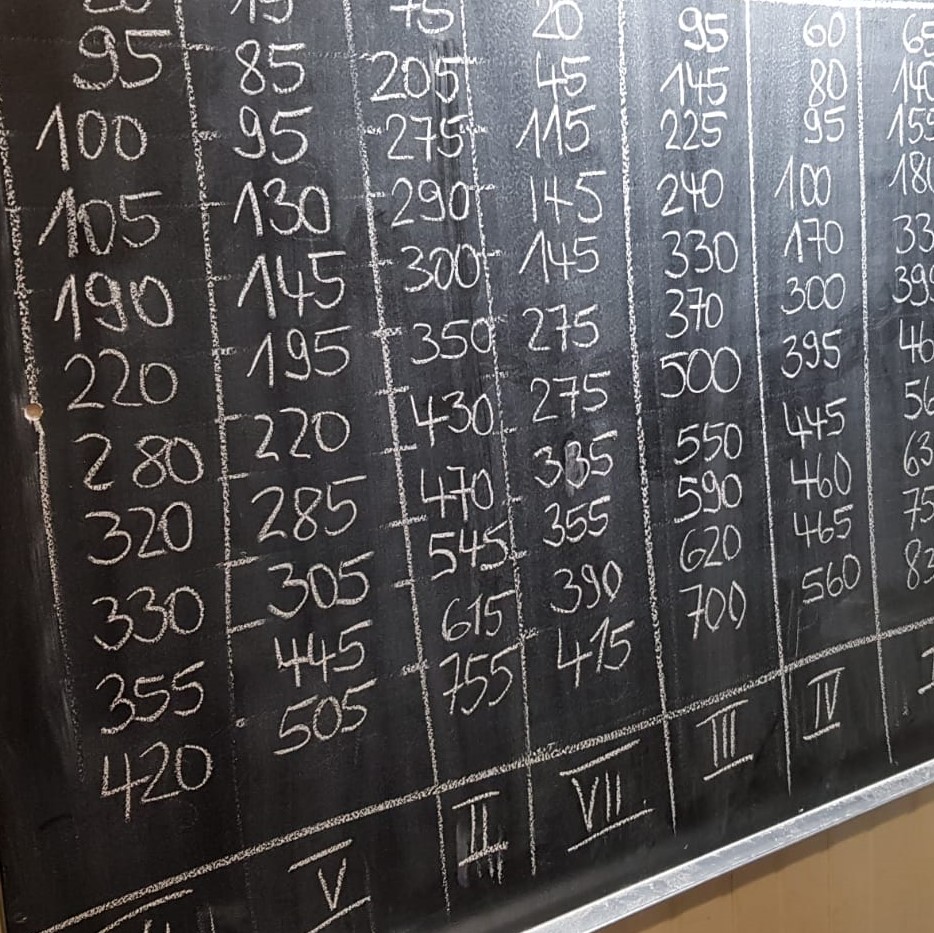 75 20 95 60
95 85 205 45 145 80
100 95 275 115 225 95
105 130 290 145 240 100
190 145 300 145 330 170
220 195 350 275 370 300
280 220 430 275 500 395
320 285 470 550 445
330 305 545 355 590 460
355 445 615 390 620 465
420 505 755 415 700 560
V II VII III IV